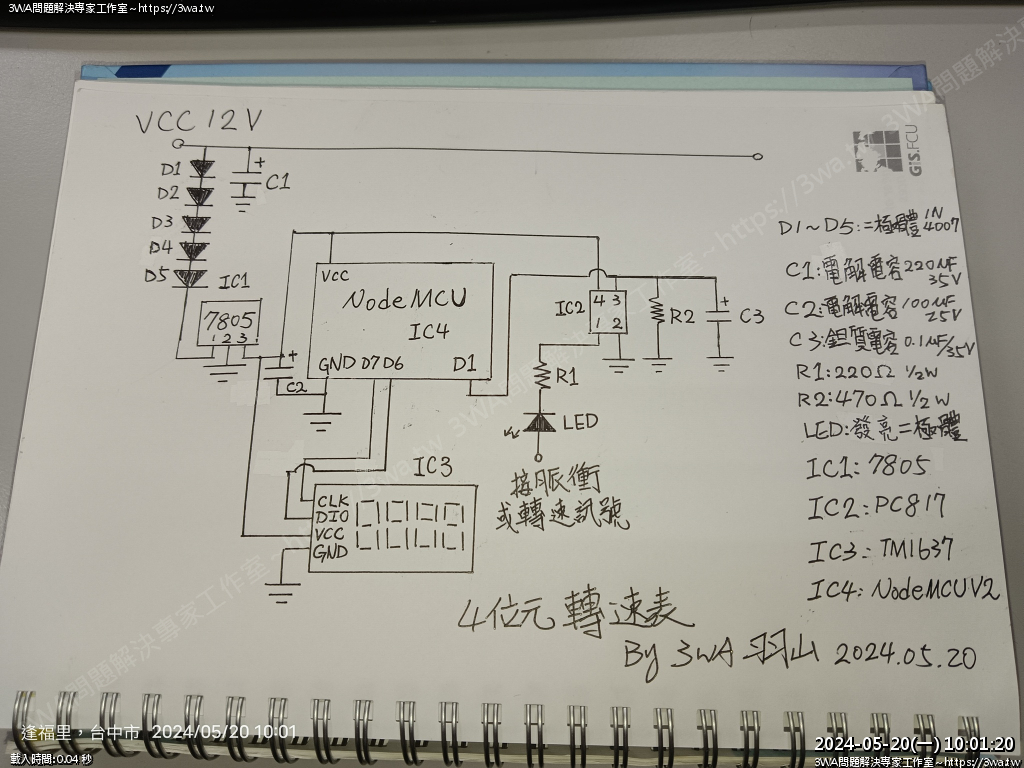 3WA問題解決專家工作室~https://3wa.tw
VCC 12V
GIS.FCU
D1
D2
D3
D4
D5
+
C1
IC1
7805
1 2 3
+
C2
VCC
NodeMCU
IC4
GND D7 D6 D1
IC2
4 3
1 2
R2
+
C3
R1
LED
接脈衝
或轉速訊號
IC3
CLK
DIO
VCC
GND
D1~D5:二極體 1N4007
C1:電解電容 220uF 35V
C2:電解電容 100uF 25V
C3:鉭質電容 0.1uF/35V
R1:220Ω 1/2W
R2:470Ω 1/2W
LED:發亮二極體
IC1:7805
IC2:PC817
IC3:TM1637
IC4:NodeMCUV2
4位元轉速表
By 3WA 羽山 2024.05.20
逢福里，台中市 2024/05/20 10:01
載入時間:0.04 秒
2024-05-20(一) 10:01:20
3WA問題解決專家工作室~https://3wa.tw